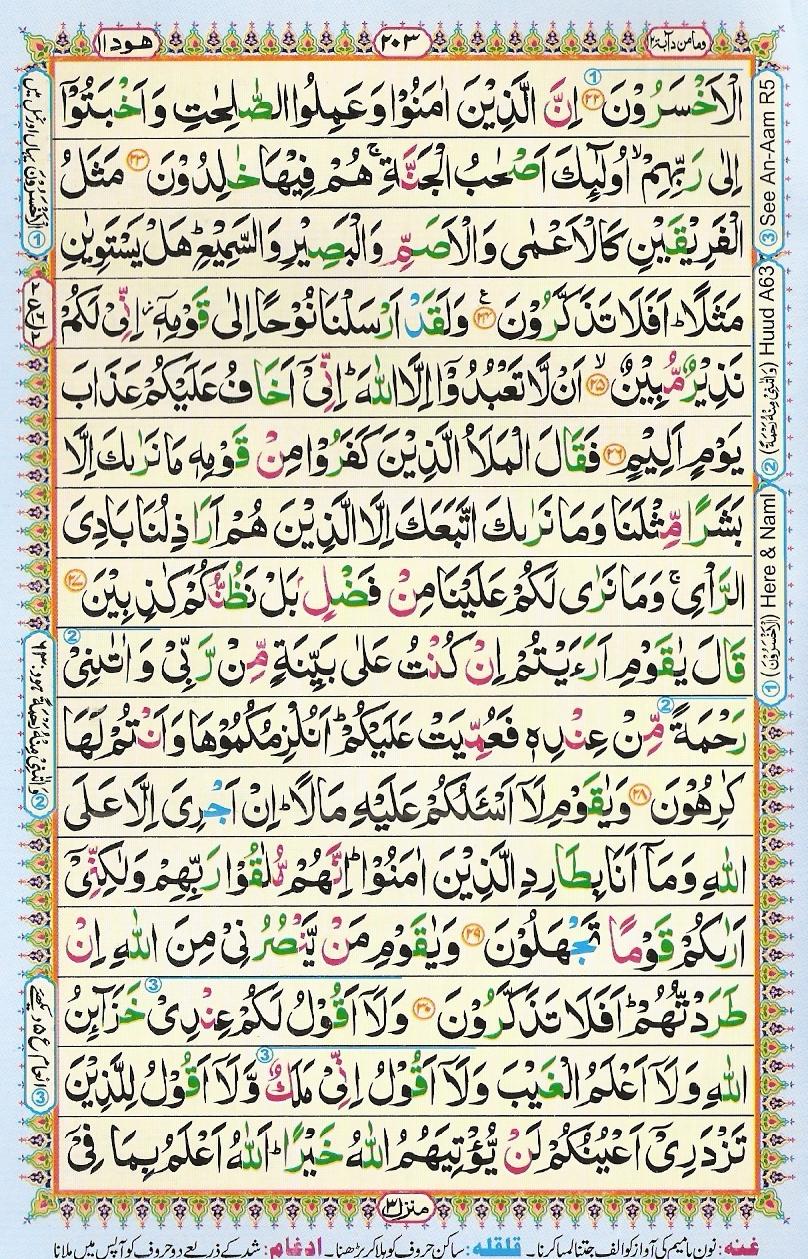 وما من دآبة ١٢
٢٠٣
هود ١١
الْاَخْسَرُوْنَ ﴿۲۲﴾ اِنَّ الَّذِیْنَ اٰمَنُوْا وَعَمِلُوا الصّٰلِحٰتِ وَاَخْبَتُوْۤا
اِلٰی رَبِّهِمْ ۙ اُولٰٓئِكَ اَصْحٰبُ الْجَنَّةِ ۚ هُمْ فِیْهَا خٰلِدُوْنَ ﴿۲۳﴾ مَثَلُ
الْفَرِیْقَیْنِ كَالْاَعْمٰی وَالْاَصَمِّ وَالْبَصِیْرِ وَالسَّمِیْعِ ؕ هَلْ یَسْتَوِیٰنِ
مَثَلًا ؕ اَفَلَا تَذَكَّرُوْنَ ﴿۲۴﴾ ع وَلَقَدْ اَرْسَلْنَا نُوْحًا اِلٰی قَوْمِهٖۤ ؗ اِنِّیْ لَكُمْ
نَذِیْرٌ مُّبِیْنٌ ﴿۲۵﴾ ۙ اَنْ لَّا تَعْبُدُوْۤا اِلَّا اللّٰهَ ؕ اِنِّیْۤ اَخَافُ عَلَیْكُمْ عَذَابَ
یَوْمٍ اَلِیْمٍ ﴿۲۶﴾ فَقَالَ الْمَلَاُ الَّذِیْنَ كَفَرُوْا مِنْ قَوْمِهٖ مَا نَرٰىكَ اِلَّا
بَشَرًا مِّثْلَنَا وَمَا نَرٰىكَ اتَّبَعَكَ اِلَّا الَّذِیْنَ هُمْ اَرَاذِلُنَا بَادِیَ
الرَّاْیِ ۚ وَمَا نَرٰی لَكُمْ عَلَیْنَا مِنْ فَضْلٍۭ بَلْ نَظُنُّكُمْ كٰذِبِیْنَ ﴿۲۷﴾
قَالَ یٰقَوْمِ اَرَءَیْتُمْ اِنْ كُنْتُ عَلٰی بَیِّنَةٍ مِّنْ رَّبِّیْ وَاٰتٰىنِیْ
رَحْمَةً مِّنْ عِنْدِهٖ فَعُمِّیَتْ عَلَیْكُمْ ؕ اَنُلْزِمُكُمُوْهَا وَاَنْتُمْ لَهَا
كٰرِهُوْنَ ﴿۲۸﴾ وَیٰقَوْمِ لَاۤ اَسْـَٔلُكُمْ عَلَیْهِ مَالًا ؕ اِنْ اَجْرِیَ اِلَّا عَلَی
اللّٰهِ وَمَاۤ اَنَا بِطَارِدِ الَّذِیْنَ اٰمَنُوْا ؕ اِنَّهُمْ مُّلٰقُوْا رَبِّهِمْ وَلٰكِنِّیْۤ
اَرٰىكُمْ قَوْمًا تَجْهَلُوْنَ ﴿۲۹﴾ وَیٰقَوْمِ مَنْ یَّنْصُرُنِیْ مِنَ اللّٰهِ اِنْ
طَرَدْتُّهُمْ ؕ اَفَلَا تَذَكَّرُوْنَ ﴿۳۰﴾ وَلَاۤ اَقُوْلُ لَكُمْ عِنْدِیْ خَزَآئِنُ
اللّٰهِ وَلَاۤ اَعْلَمُ الْغَیْبَ وَلَاۤ اَقُوْلُ اِنِّیْ مَلَكٌ وَّلَاۤ اَقُوْلُ لِلَّذِیْنَ
تَزْدَرِیْۤ اَعْیُنُكُمْ لَنْ یُّؤْتِیَهُمُ اللّٰهُ خَیْرًا ؕ اَللّٰهُ اَعْلَمُ بِمَا فِیْۤ
منزل ٣
③ See An-Aam R5
② (وَاٰتٰىنِیْ مِنْهُ رَحْمَةً) Huud A63
① (اَلْاَخْسَرُوْنَ) Here & Naml
① اَلْاَخْسَرُوْنَ یہاں اور نمل میں
② وَاٰتٰىنِیْ مِنْهُ رَحْمَةً ہود: ۶۳
③ انعام ع ۵ دیکھئے
غنہ: نون یا میم کی آواز کو الف جتنا لمبا کرنا۔ قلقلہ: ساکن حروف کو ہلا کر پڑھنا۔ ادغام: شد کے ذریعے دو حروف کو آپس میں ملانا